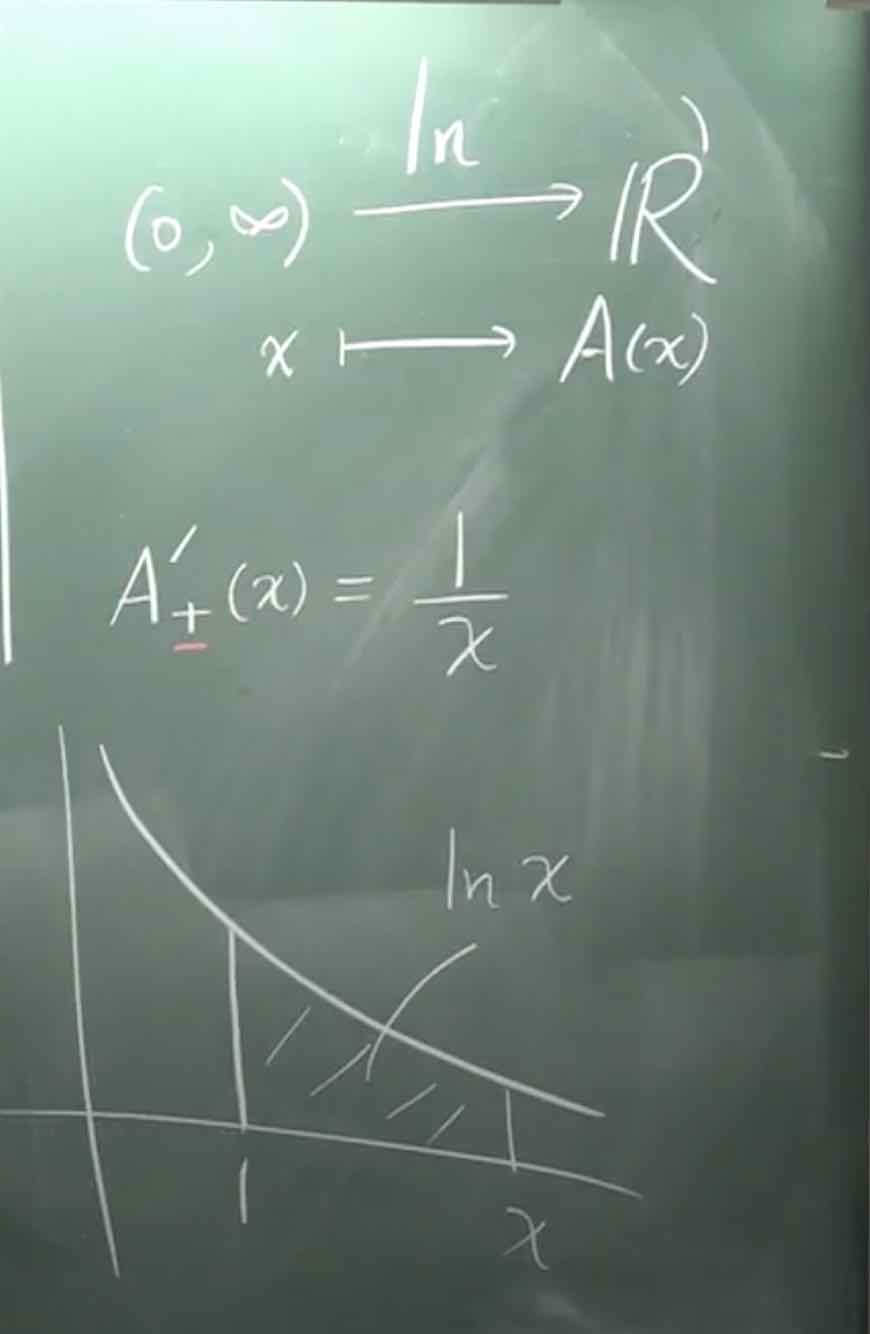 (0, ∞) ⟶ ln ℝ
x ⟼ A(x)
A′₊(x) = 1/x
ln x
1
x